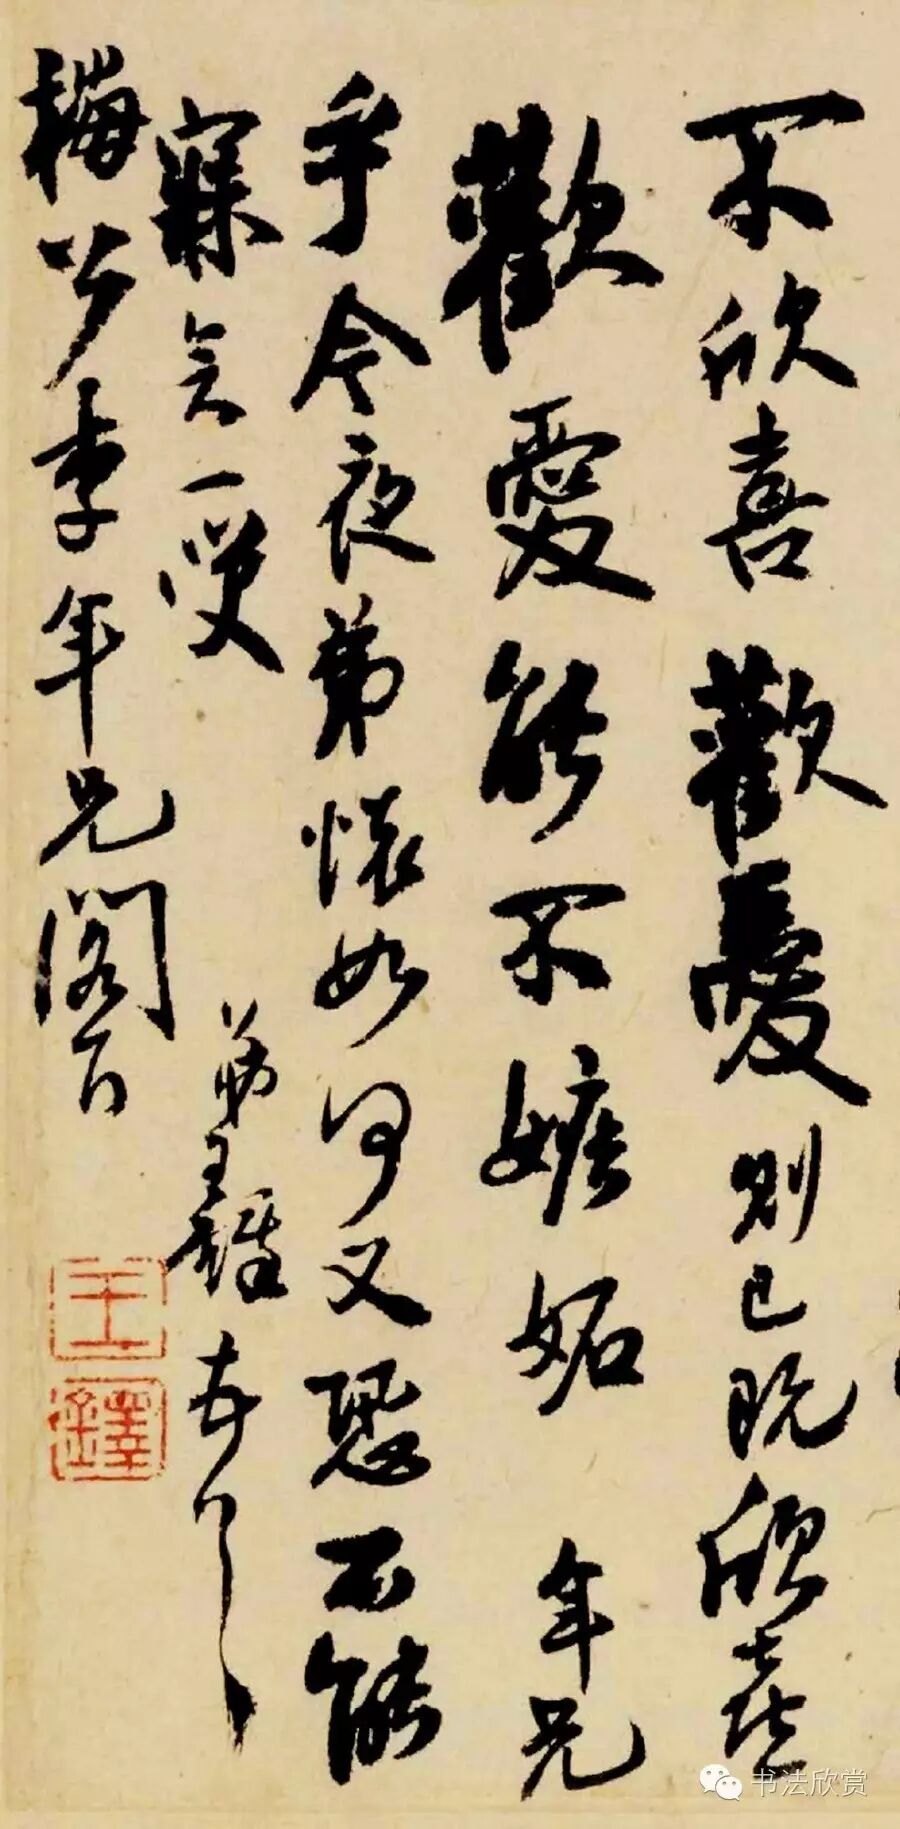 不欣喜歡愛則已既欣喜
歡愛能不嫉妬年兄
乎今夜弟懷如何又恐不能
寐矣一噱
弟王鐸頓首
梅公李年兄閣下
王
鐸
书法欣赏